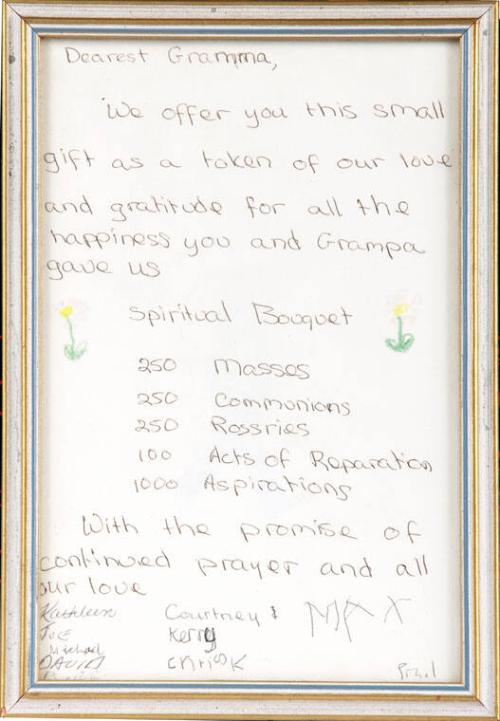 Dearest Gramma,
We offer you this small
gift as a token of our love
and gratitude for all the
happiness you and Grampa
gave us
Spiritual Bouquet
250 Masses
250 Communions
250 Rossries
100 Acts of Reparation
1000 Aspirations
With the promise of
continued prayer and all
our love
Kathleen Courtney & MAX
Kerry
Michael
DAVID chrisK